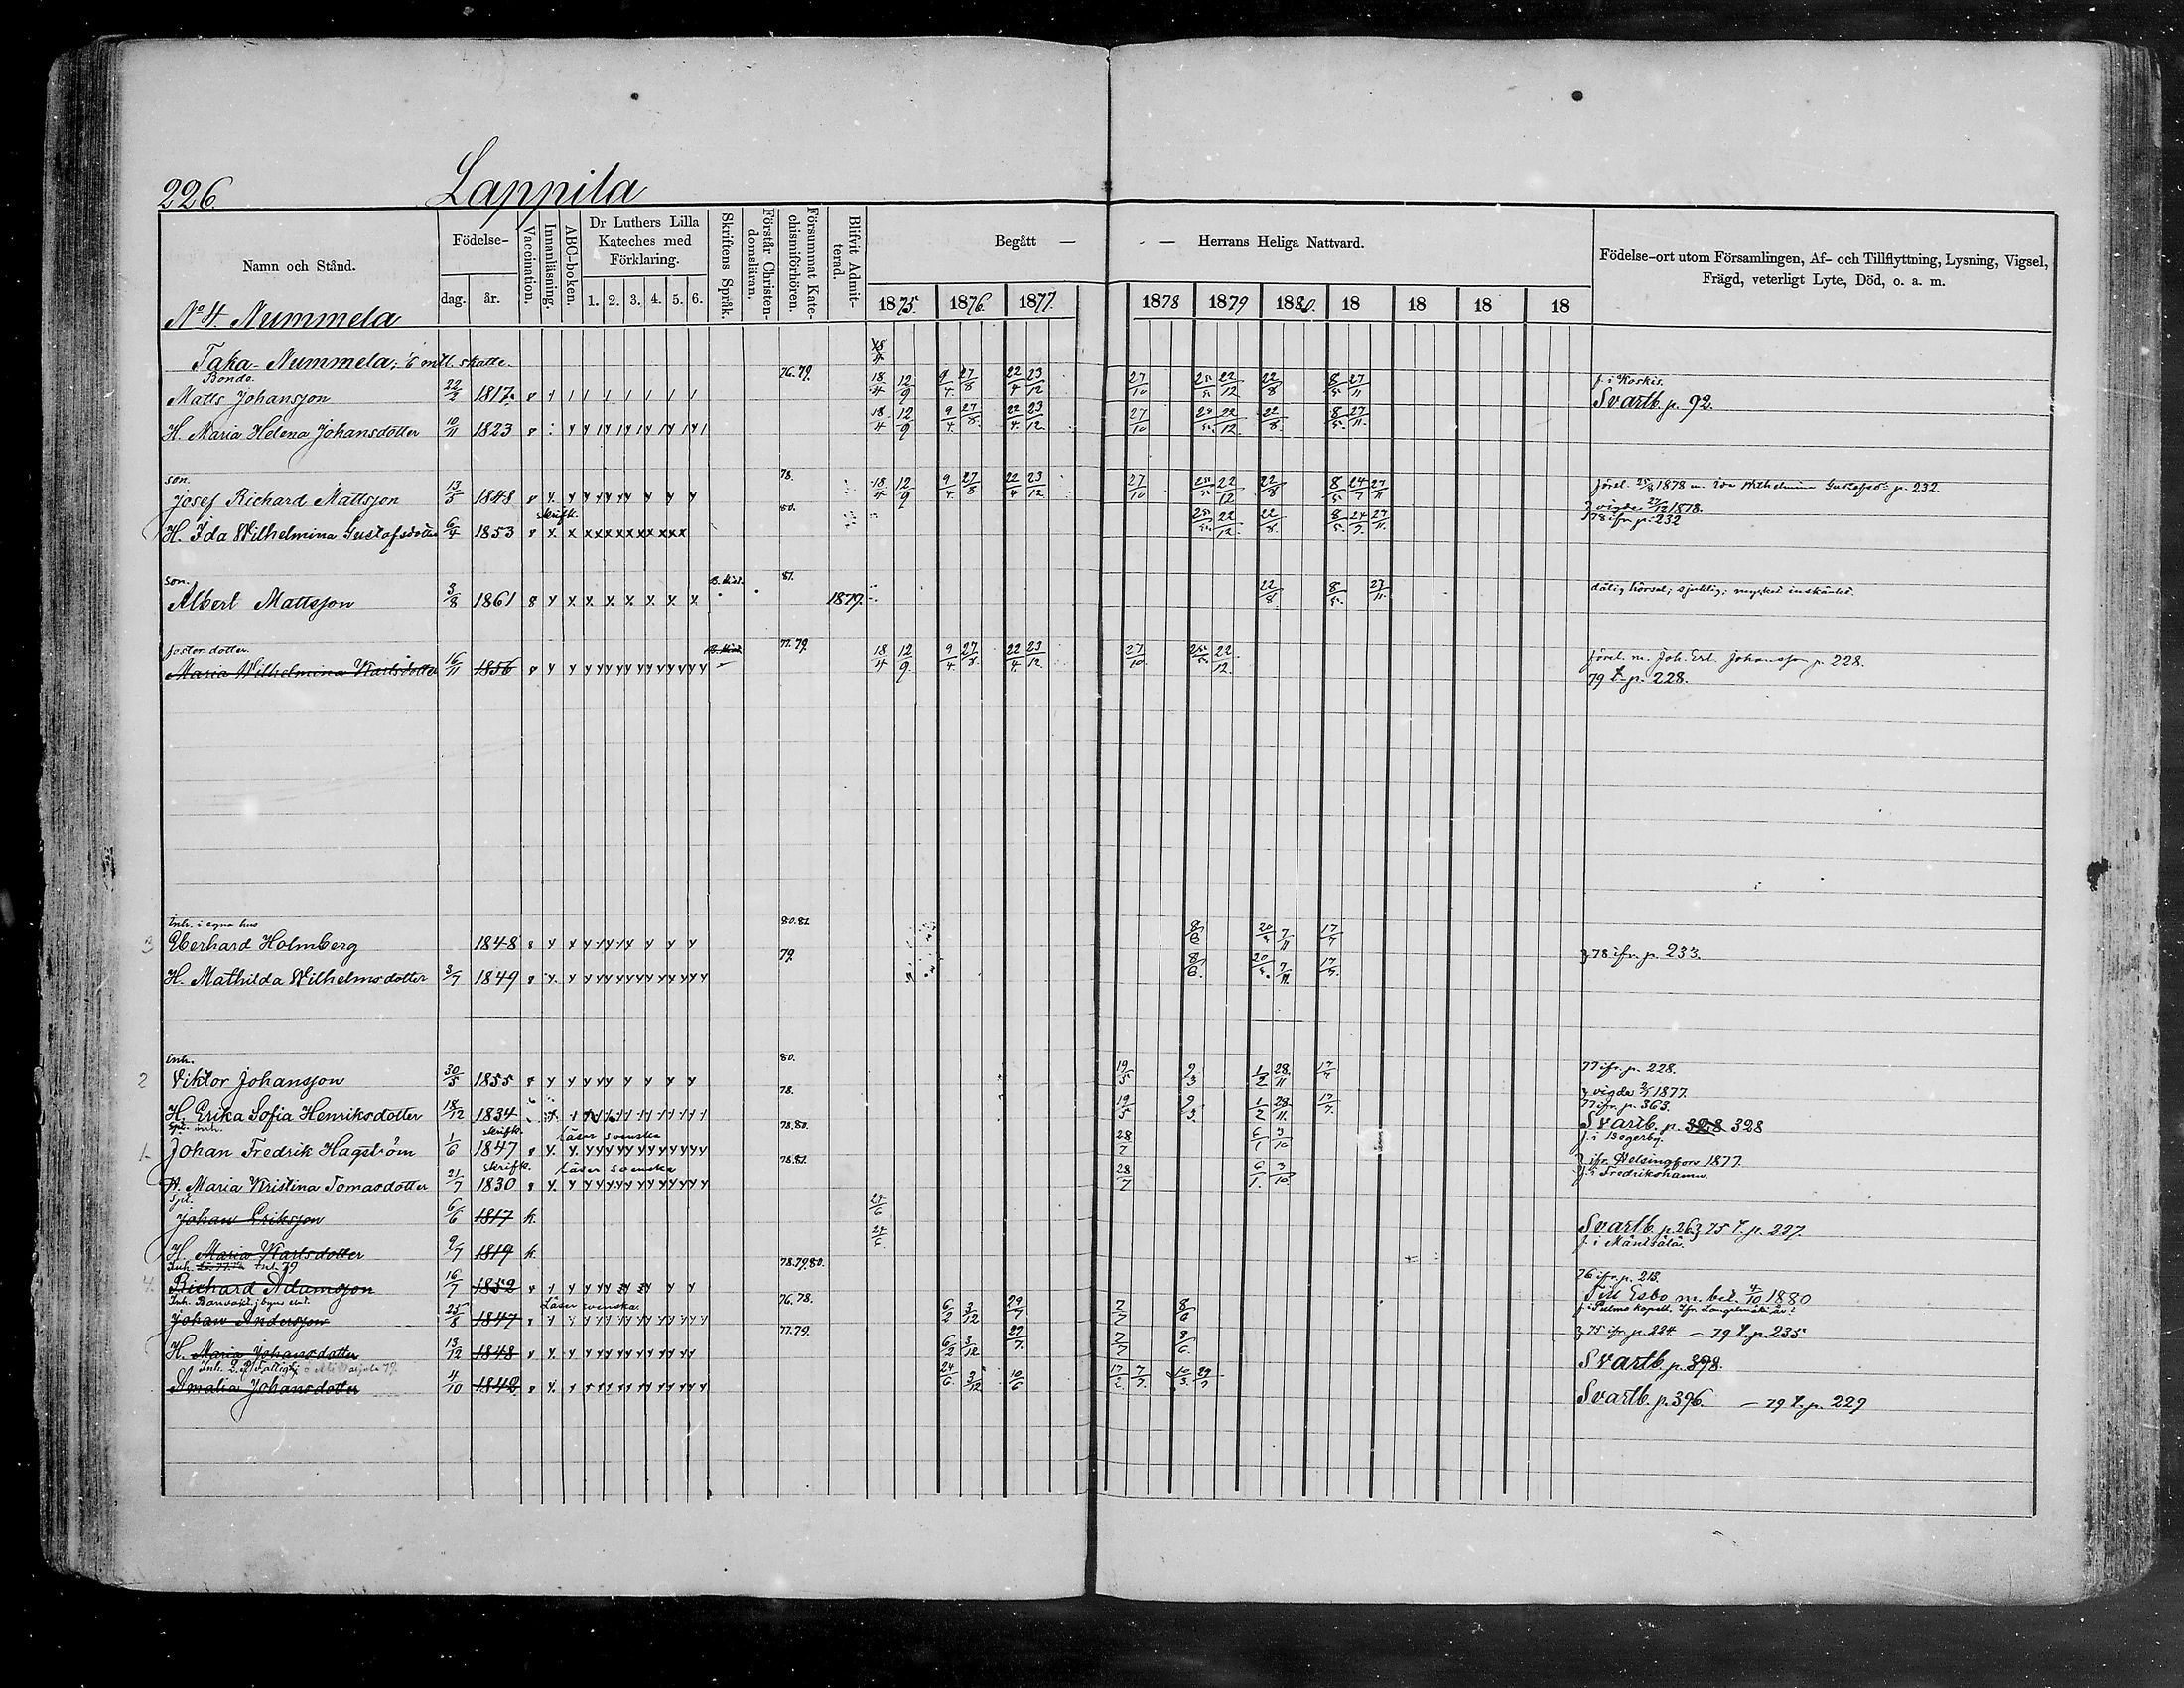 226. Lappila
Namn och Stånd. Födelse- dag. år. Vaccination. Innanläsning. ABC-boken. Dr Luthers Lilla Kateches med Förklaring. 1. 2. 3. 4. 5. 6. Skriftens Språk. Förstår Christendomsläran. Försummat Katechismiförhören. Blifvit Admitterad. Begått — — Herrans Heliga Nattvard. 1875. 1876. 1877. 1878 1879 1880. 18 18 18 18 Födelse-ort utom Församlingen, Af- och Tillflyttning, Lysning, Vigsel, Frägd, veterligt Lyte, Död, o. a. m.
No 4. Nummela
Taka-Nummela, 1/6 mtl. skatte.
Bonde. 76.79. f. i Koskis.
Matts Johansson 22/2 1817. 18/4 12/9 9/4 27/8 22/4 23/12 27/10 25/5 22/12 22/8 8/5 27/11 Svartb. p. 92.
H. Maria Helena Johansdotter 10/11 1823 18/4 12/9 9/4 27/8 22/4 23/12 27/10 25/5 22/12 22/8 8/5 27/11
son. 78.
Josef Richard Mattsson 13/5 1848 18/4 12/9 9/4 27/8 22/4 23/12 27/10 25/5 22/12 22/8 8/5 24/7 27/11 förel. 25/8 1878 m. Ida Wilhelmina Gustafsd: p. 232.
skrifk. 80. vigda 27/12 1878.
H. Ida Wilhelmina Gustafsdotter 6/4 1853 25/5 22/12 22/8 8/5 24/7 27/11 78 ifr. p. 232
son. 81.
Albert Mattsson 3/8 1861 1879. 22/8 8/5 27/11 dålig hörsel; sjuklig; mycket inskränkt.
foster dotter. 77.79.
Maria Wilhelmina Karlsdotter 16/11 1856 18/4 12/9 9/4 27/8 22/4 23/12 27/10 25/5 22/12 förel. m. Joh. Erl. Johansson p. 228.
79 t. p. 228.
Inh. i egna hus 80.81.
3 Eberhard Holmberg 1848 8/6 20/5 7/11 17/7
79.
H. Mathilda Wilhelmsdotter 3/7 1849 8/6 20/5 7/11 17/7 78 ifr. p. 233.
Inh. 80.
2 Viktor Johansson 30/5 1855 19/5 9/3 1/2 28/11 17/7 77 ifr. p. 228.
78. vigda 2/5 1877.
H. Erika Sofia Henriksdotter 18/12 1834 19/5 9/3 1/2 28/11 17/7 77 ifr. p. 363.
Spst. inh. skrifk. Läser svenska 78.80. Svartb. p. 328 328
1 Johan Fredrik Hagström 1/6 1847 28/7 6/1 3/10 f. i Bogerby.
skrifk. Läser svenska 78.81. ifr. Helsingfors 1877.
H. Maria Kristina Tomasdotter 21/7 1830 28/7 6/1 3/10 f. i Fredrikshamn.
Spt.
Johan Eriksson 6/6 1817 k. 24/6
H. Maria Karlsdotter 9/7 1819 k. 24/6 Svartb. p. 263 75 t. p. 227.
f. i Mäntsälä.
Inh. 79 78.79.80.
4 Richard Adamsson 16/7 1852 76 ifr. p. 218.
Till Esbo m. bet. 4/10 1880
Inh. Banvakt. Läser svenska 76.78.
Johan Andersson 25/8 1847 6/2 3/12 29/7 7/7 8/6
77.79.
H. Maria Johansdotter 13/12 1848 6/2 3/12 29/7 7/7 8/6 75 ifr. p. 224. — 79 t. p. 235
Svartb. p. 398.
Amalia Johansdotter 4/10 1842 24/6 3/12 10/6 17/2 7/7 10/3 29/7 Svartb. p. 396. — 79 t. p. 229